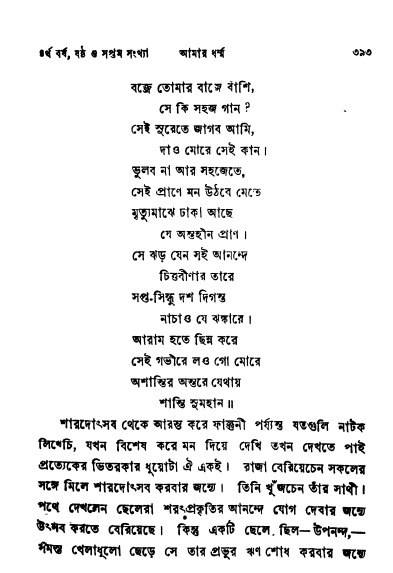 ৪র্থ বর্ষ, ষষ্ঠ ও সপ্তম সংখ্যা আমার ধর্ম্ম ৩৯৩
বজ্রে তোমার বাজে বাঁশি,
সে কি সহজ গান ?
সেই সুরেতে জাগব আমি,
দাও মোরে সেই কান।
ভুলব না আর সহজেতে,
সেই প্রাণে মন উঠবে মেতে
মৃত্যুমাঝে ঢাকা আছে
যে অন্তহীন প্রাণ।
সে ঝড় যেন সই আনন্দে
চিত্তবীণার তারে
সপ্ত-সিন্ধু দশ দিগন্ত
নাচাও যে ঝঙ্কারে।
আরাম হতে ছিন্ন করে
সেই গভীরে লও গো মোরে
অশান্তির অন্তরে যেথায়
শান্তি সুমহান॥
শারদোৎসব থেকে আরম্ভ করে ফাল্গুনী পর্য্যন্ত যতগুলি নাটক
লিখেচি, যখন বিশেষ করে মন দিয়ে দেখি তখন দেখতে পাই
প্রত্যেকের ভিতরকার ধুয়োটা ঐ একই। রাজা বেরিয়েচেন সকলের
সঙ্গে মিলে শারদোৎসব করবার জন্যে। তিনি খুঁজচেন তাঁর সাথী।
পথে দেখলেন ছেলেরা শরৎপ্রকৃতির আনন্দে যোগ দেবার জন্যে
উৎসব করতে বেরিয়েছে। কিন্তু একটি ছেলে ছিল—উপনন্দ,—
সমস্ত খেলাধূলো ছেড়ে সে তার প্রভুর ঋণ শোধ করবার জন্যে